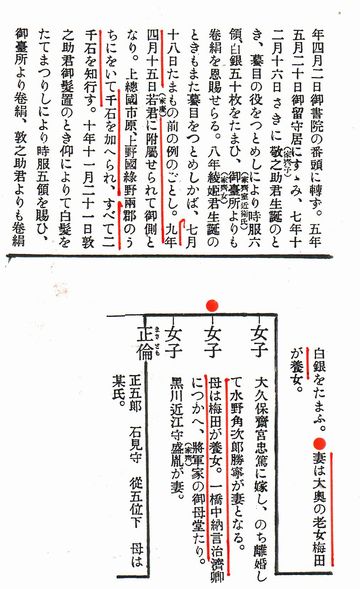 年四月二日御書院の番頭に轉ず。五年
五月二十日御留守居にすゝみ、七年十
二月十六日さきに敬之助君生誕のと
き、蟇目の役をつとめしにより時服六
領、白銀五十枚をたまひ、御臺所よりも
卷絹を恩賜せらる。八年綾姬君生誕の
ときもまた蟇目をつとめしかば、七月
十八日たまもの前の例のごとし。九年
四月十五日若君に附屬せられて御側と
なり。上總國市原、上野國綠野兩郡のう
ちにをいて千石を加へられ、すべて二
千石を知行す。十年十一月二十一日敦
之助君御髮置のとき仰によりて白髮を
たてまつりしにより時服五領を賜ひ、
御臺所より卷絹、敦之助君よりも卷絹
白銀をたまふ。妻は大奧の老女梅田
が養女。
女子
大久保齋宮忠篤に嫁し、のち離婚し
て水野角次郎勝寧が妻となる。
女子
母は梅田が養女。一橋中納言治濟卿
につかへ、將軍家の御母堂たり。
(家齊)
女子
黑川近江守盛胤が妻。
正倫
まさとも
正五郎 石見守 從五位下 母は
某氏。